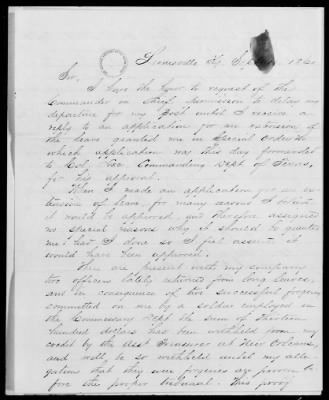 Sir,
I have the honor to request of the
Commander in Chief permission to delay my
departure for my Post until I receive a
reply to an application for an extension of
the leave granted me in Special Orders
which application was this day forwarded
to Col. Commanding Dept of Texas,
for his approval.
When I made an application for an ex-
tension of leave, for many reasons I believed
it would be approved, and therefore assigned
no special reasons why it should be granted
me. Had I done so I feel assured it
would have been approved.
There are present with my company
two officers lately returned from long leaves,
and in consequence of the successful forgery
committed on me by a soldier employed in
the Commissary Dept the sum of Thirteen
hundred dollars has been withheld from my
credit by the Asst Treasurer at New Orleans,
and will be so withheld until my alle-
gations that they were forgeries are proven be-
fore the proper tribunal. This proof